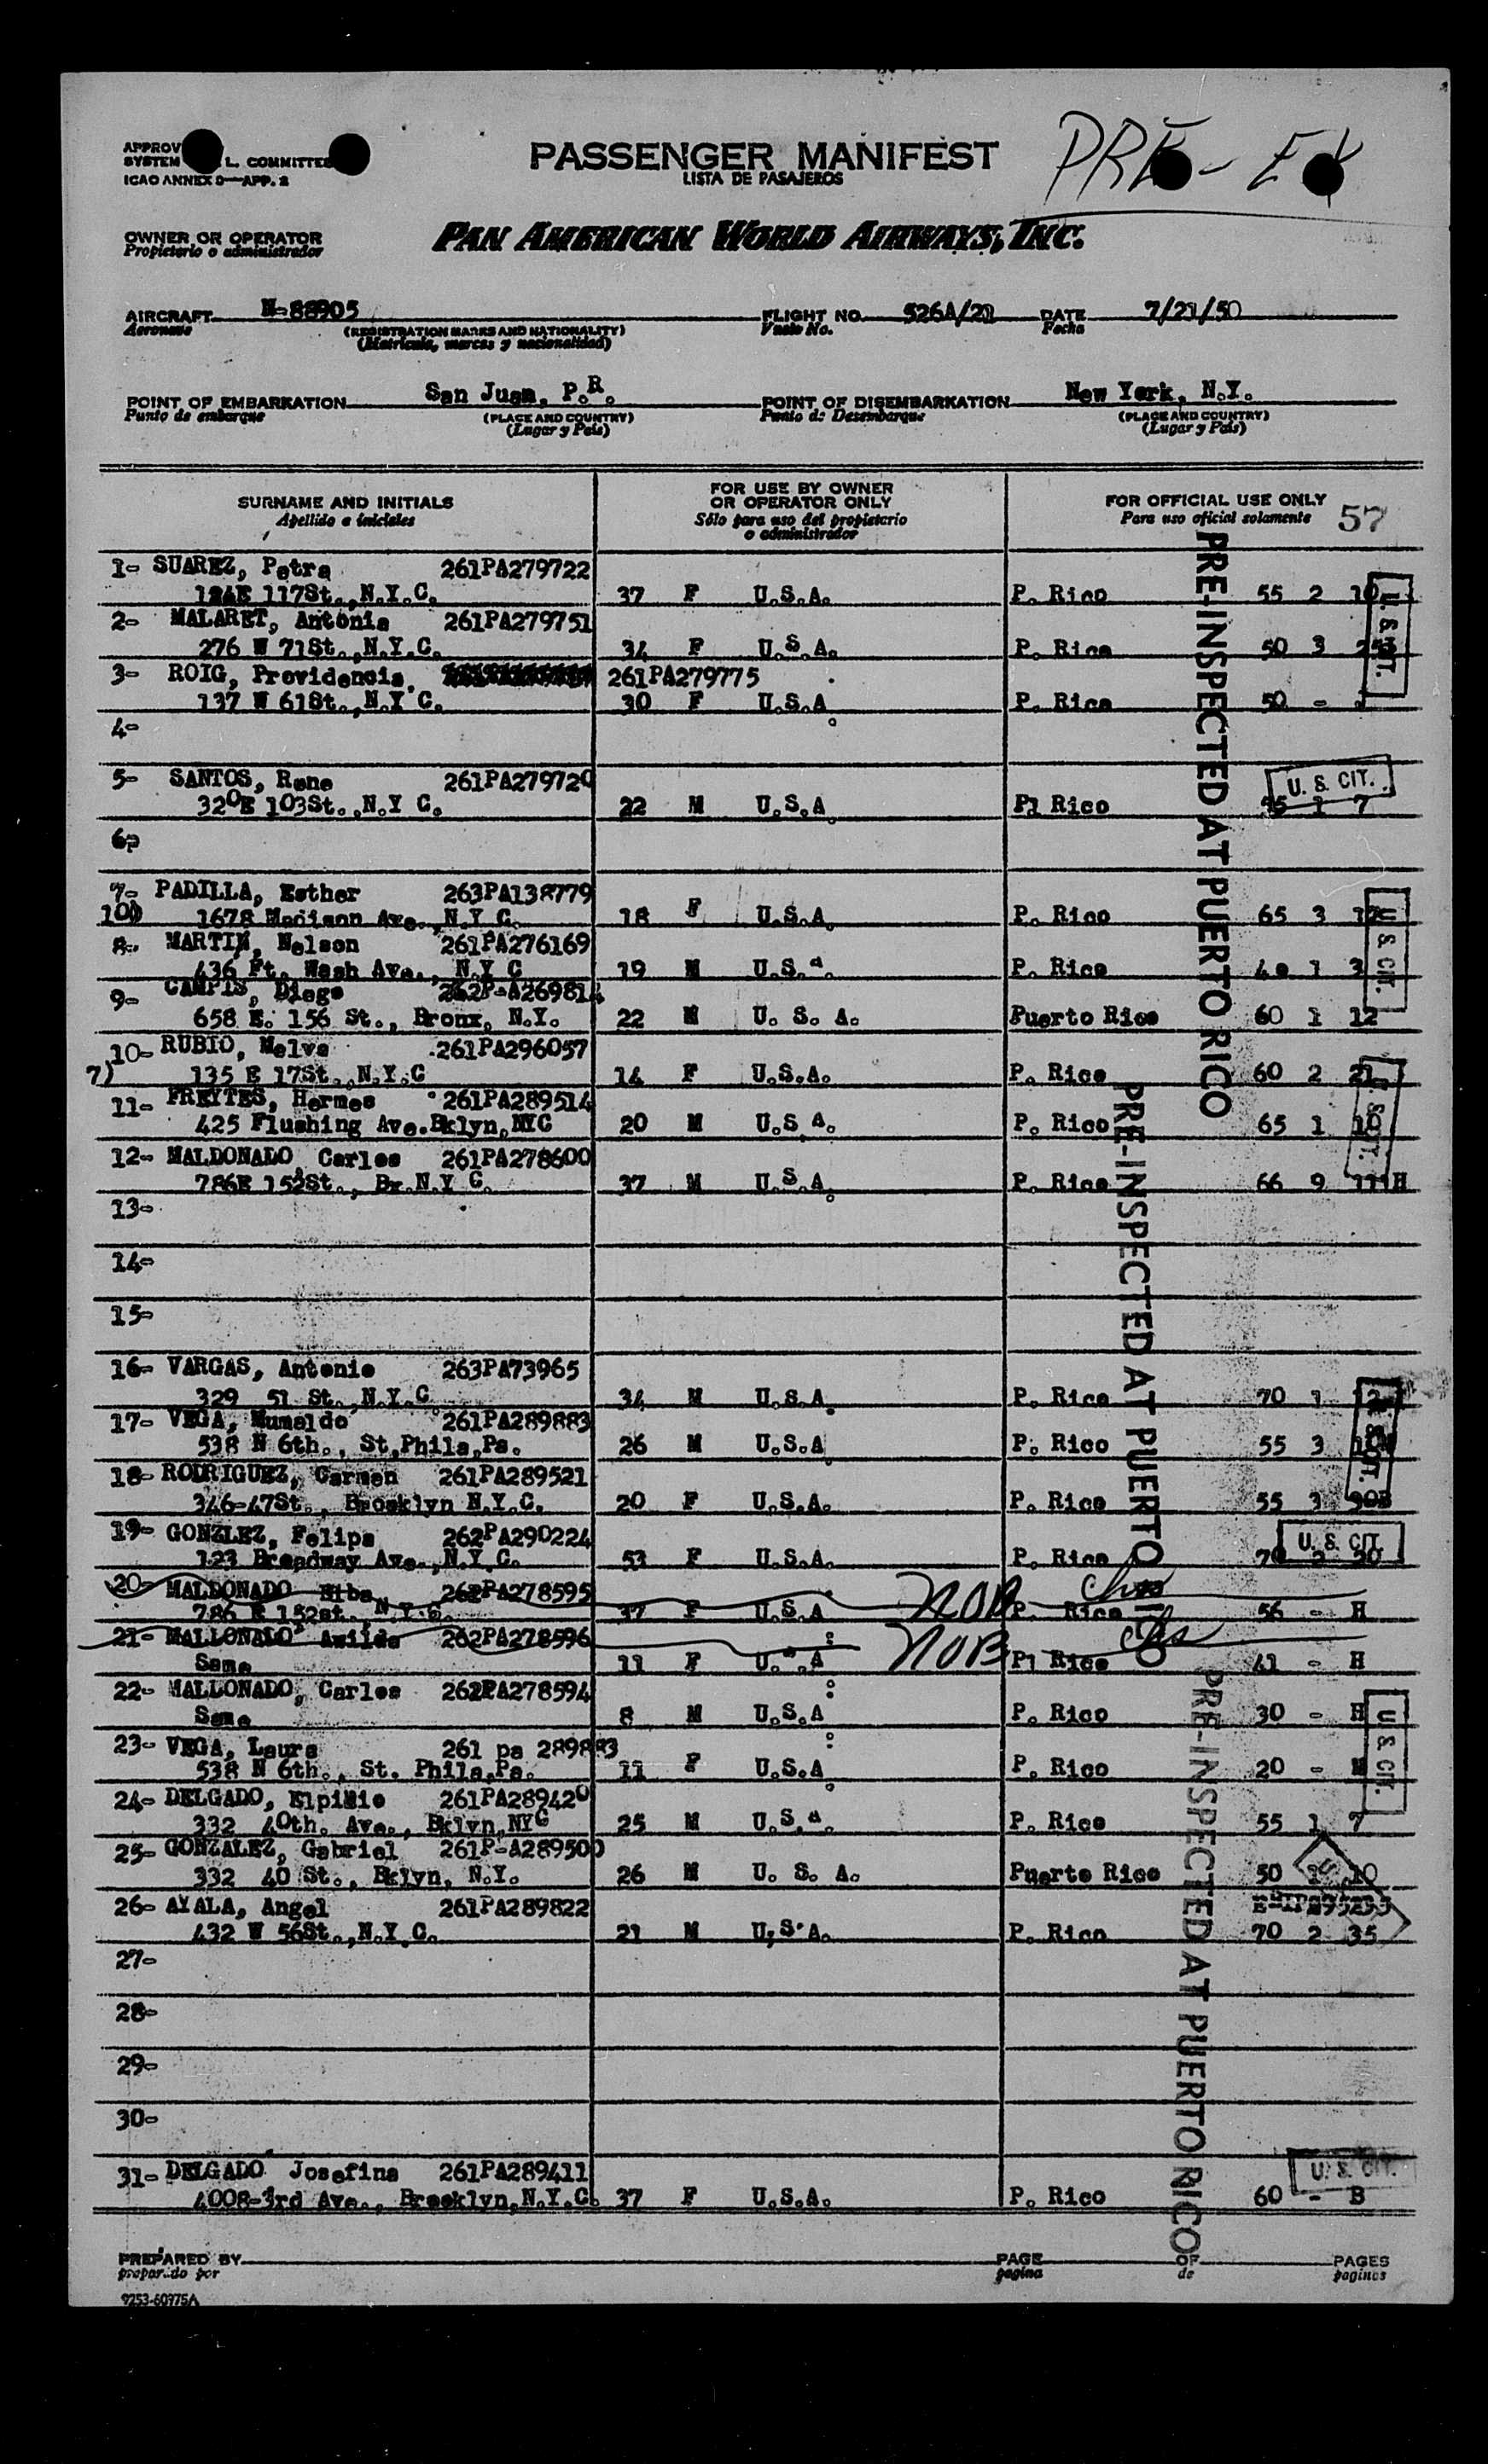 PRE-EX
APPROV
SYSTEM L. COMMITTEE
ICAO ANNEX 9—APP. 2
PASSENGER MANIFEST
LISTA DE PASAJEROS
OWNER OR OPERATOR
Propietario o administrador
PAN AMERICAN WORLD AIRWAYS, INC.
AIRCRAFT N-88905 FLIGHT NO. 526A/21 DATE 7/21/50
Aeronave (REGISTRATION MARKS AND NATIONALITY) Vuelo No. Fecha
(Matricula, marcas y nacionalidad)
POINT OF EMBARKATION San Juan, P.R. POINT OF DISEMBARKATION New York, N.Y.
Punto de embarque (PLACE AND COUNTRY) Punto de Desembarque (PLACE AND COUNTRY)
(Lugar y País) (Lugar y País)
SURNAME AND INITIALS FOR USE BY OWNER OR OPERATOR ONLY FOR OFFICIAL USE ONLY 57
Apellido e iniciales Sólo para uso del propietario o administrador Para uso oficial solamente
1- SUAREZ, Petra 261PA279722
117St.,N.Y.C. 37 F U.S.A. P. Rico 55 2 10
2- MALARET, Antonia 261PA279751
276 W 71St.,N.Y.C. 34 F U.S.A. P. Rico 50 3
3- ROIG, Providencia. 261PA279775
137 W 61St.,N.Y C. 30 F U.S.A. P. Rico 50 -
4-
5- SANTOS, Rene 261PA279720
320E 103St.,N.Y C. 22 M U.S.A. P1 Rico 1 7
6-
7- PADILLA, Esther 263PA138779
100 1678 Madison Ave.,N.Y.C. 18 F U.S.A P. Rico 65 3
8- MARTIN, Nelson 261PA276169
436 Ft. Wash Ave., N.Y C 19 M U.S.A. P. Rico 40 1 3
9- CAMPIS, Diego 262P-A269814
658 E. 156 St., Bronx, N.Y. 22 M U. S. A. Puerto Rico 60 1 12
10- RUBIO, Melva 261PA296057
7) 135 E 17St.,N.Y.C 14 F U.S.A. P. Rico 60 2 21
11- FREYTES, Hermes 261PA289514
425 Flushing Ave.Bklyn,NYC 20 M U.S.A. P. Rico 65 1
12- MALDONADO, Carlos 261PA278600
786E 152St., Bx.N.Y C. 37 M U.S.A. P. Rico 66 9 H
13-
14-
15-
16- VARGAS, Antonio 263PA73965
329 51 St.,N.Y.C. 34 M U.S.A. P. Rico 70 1 12
17- VEGA, 261PA289883
538 N 6th., St,Phila,Pa. 26 M U.S.A. P. Rico 55 3
18- RODRIGUEZ, Carmen 261PA289521
346-47St., Brooklyn N.Y.C. 20 F U.S.A. P. Rico 55 3
19- GONZLEZ, Felipa 262PA290224
123 Broadway Ave.,N.Y.C. 53 F U.S.A. P. Rico 70 2 20
20- MALDONADO Elba 262PA278595
786 E 152st., N.Y.C. 37 F U.S.A NOB P. Rico 56 - H
21- MALLONALO Awilda 262PA278596
Same 11 F U.S.A NOB P1 Rico 41 - H
22- MALLONADO, Carlos 262PA278594
Same 8 M U.S.A P. Rico 30 - H
23- VEGA, Laura 261 pa 289883
538 N 6th., St. Phila,Pa. 11 F U.S.A P. Rico 20 -
24- DELGADO, Elpidio 261PA289420
332 40th. Ave., Bklyn,NYC 25 M U.S.A. P. Rico 55 1 7
25- GONZALEZ, Gabriel 261P-A289500
332 40 St., Bklyn, N.Y. 26 M U. S. A. Puerto Rico 50 10
26- AYALA, Angel 261PA289822
432 W 56St.,N.Y.C. 21 M U.S.A. P. Rico 70 2 35
27-
28-
29-
30-
31- DELGADO Josefina 261PA289411
4008-3rd Ave., Brooklyn,N.Y.C. 37 F U.S.A. P. Rico 60 - B
PREPARED BY PAGE OF PAGES
preparado por pagina de paginas
9253-60975A
PRE-INSPECTED AT PUERTO RICO
PRE-INSPECTED AT PUERTO RICO
PRE-INSPECTED AT PUERTO RICO
U. S. CIT.
U. S. CIT.
U. S. CIT.
U. S. CIT.
U. S. CIT.
U. S. CIT.
U. S. CIT.
U. S. CIT.